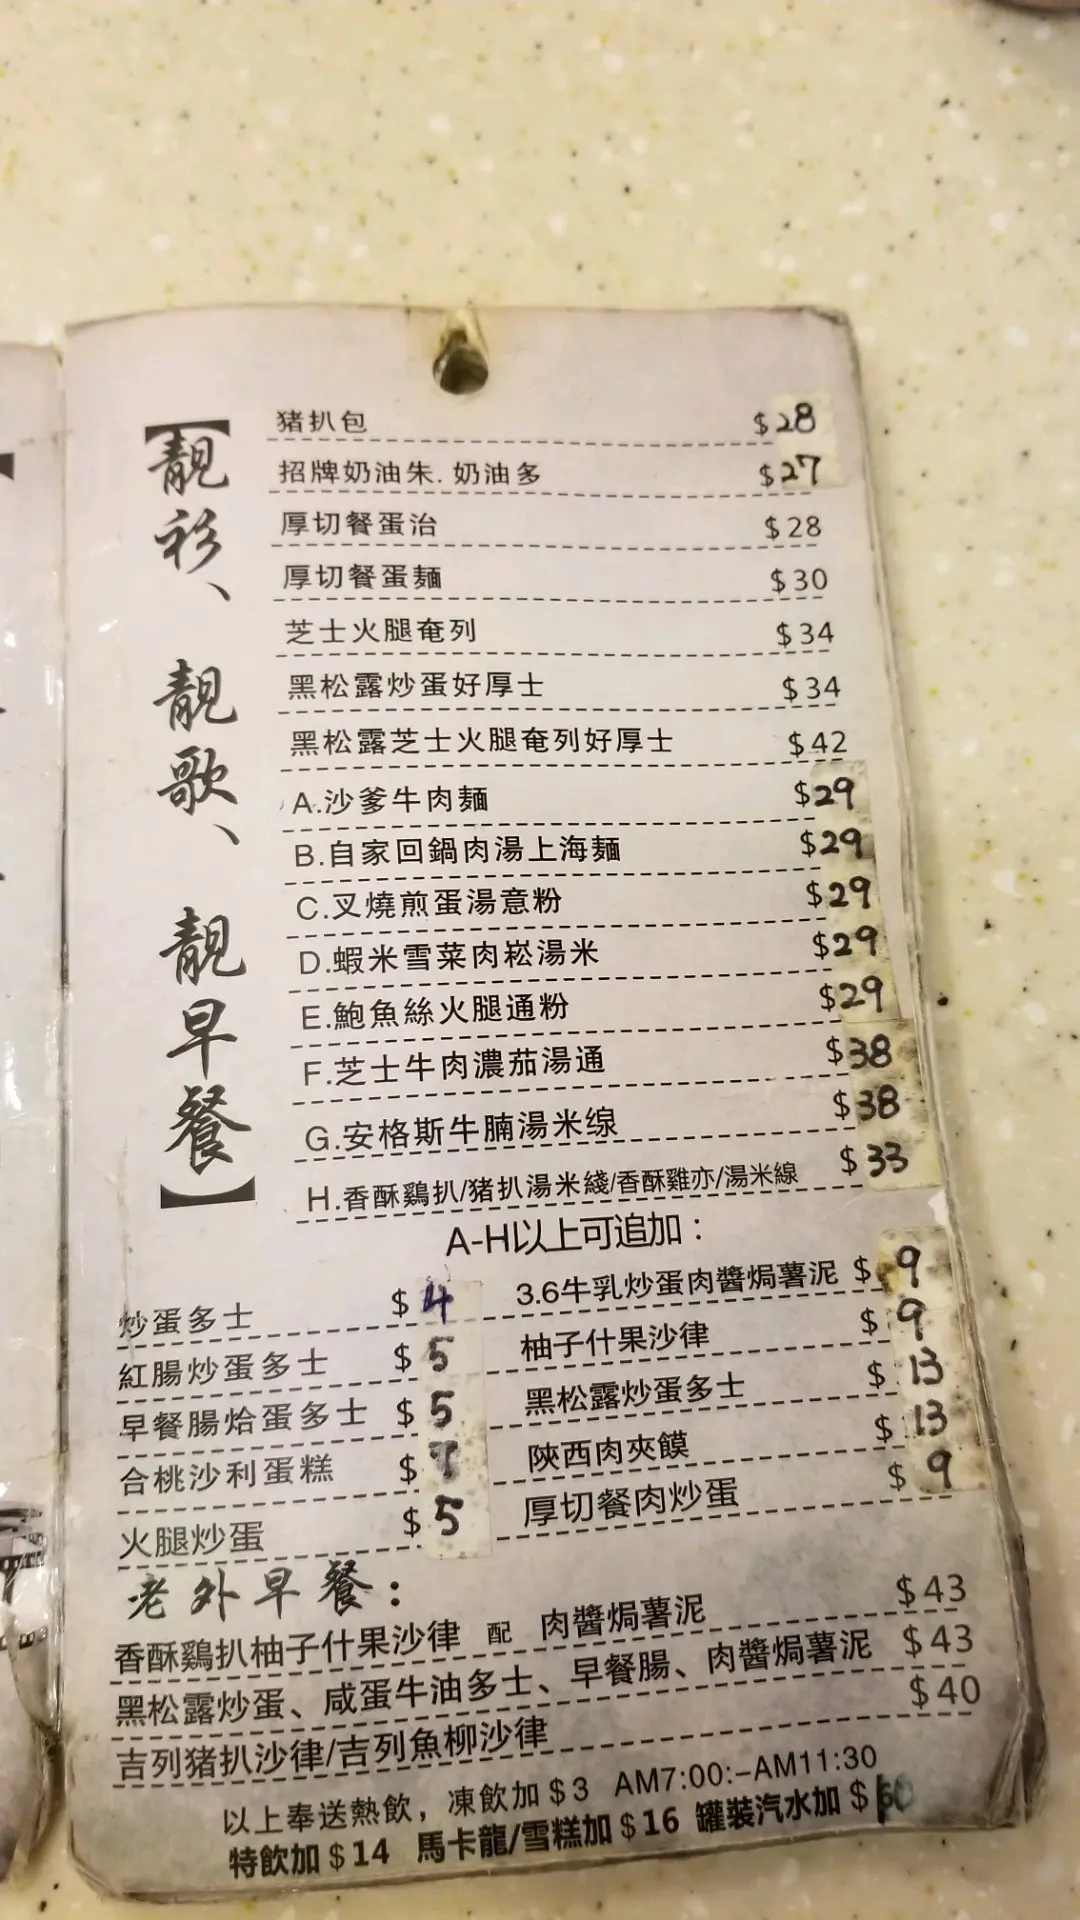 【靚衫、靚歌、靚早餐】
猪扒包 $28
招牌奶油朱. 奶油多 $27
厚切餐蛋治 $28
厚切餐蛋麵 $30
芝士火腿奄列 $34
黑松露炒蛋好厚士 $34
黑松露芝士火腿奄列好厚士 $42
A.沙爹牛肉麵 $29
B.自家回鍋肉湯上海麵 $29
C.叉燒煎蛋湯意粉 $29
D.蝦米雪菜肉崧湯米 $29
E.鮑魚絲火腿通粉 $29
F.芝士牛肉濃茄湯通 $38
G.安格斯牛腩湯米線 $38
H.香酥鷄扒/猪扒湯米綫/香酥雞亦/湯米線 $33
A-H以上可追加：
炒蛋多士 $4
紅腸炒蛋多士 $5
早餐腸烚蛋多士 $5
合桃沙利蛋糕 $
火腿炒蛋 $5
3.6牛乳炒蛋肉醬焗薯泥 $9
柚子什果沙律 $9
黑松露炒蛋多士 $13
陝西肉夾饃 $13
厚切餐肉炒蛋 $9
老外早餐：
香酥鷄扒柚子什果沙律 配 肉醬焗薯泥 $43
黑松露炒蛋、咸蛋牛油多士、早餐腸、肉醬焗薯泥 $43
吉列猪扒沙律/吉列魚柳沙律 $40
以上奉送熱飲，凍飲加$3 AM7:00:–AM11:30
特飲加$14 馬卡龍/雪糕加$16 罐裝汽水加$